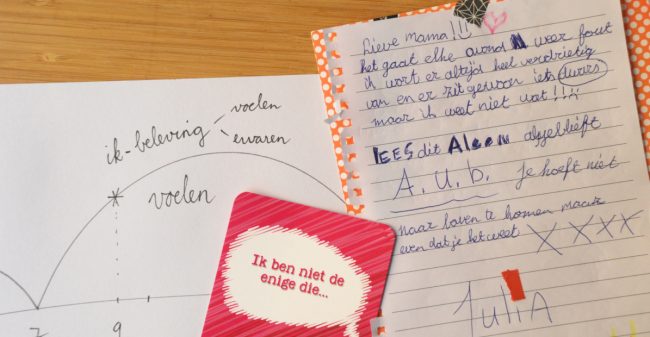 ik-beleving
voelen
ervaren
voelen
7
9
Ik ben niet de
enige die...
Lieve mama!
het gaat elke avond weer fout
ik wort er altijd heel verdrietig
van en er zit gewoon iets dwars
maar ik weet niet wat!!
lEES dit Aleen alsjeblieft
A.U.b. je hoeft niet
naar boven te komen maar
even dat je het weet X X X X
Julia